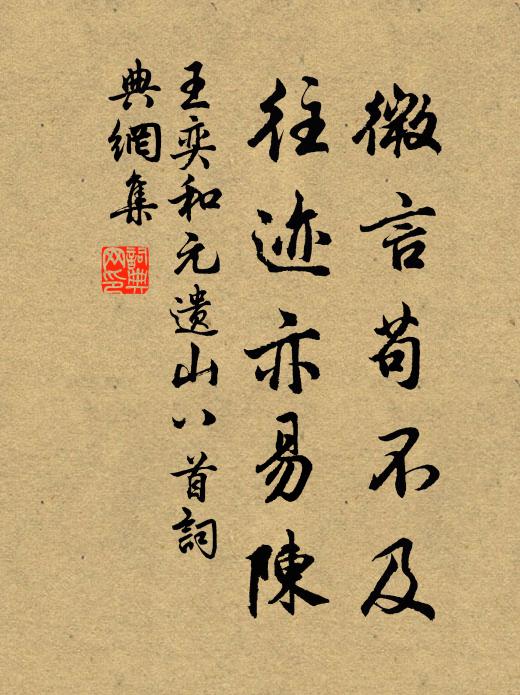 微言苟不及
往迹亦易陳
王奕和元遺山八首詞
典網集
詞典網印